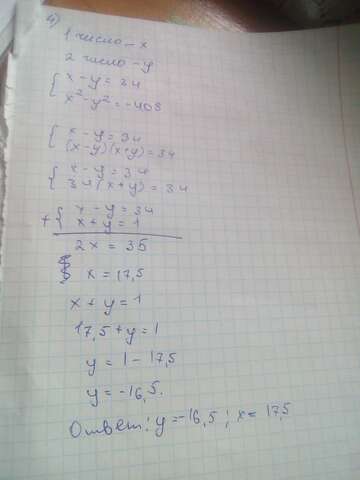 4)
1 число - x
2 число - y
{ x - y = 34
x² - y² = -408
{ x - y = 34
(x-y)(x+y) = 34
{ x - y = 34
34(x+y) = 34
+ { x - y = 34
x + y = 1
2x = 35
x = 17,5
x + y = 1
17,5 + y = 1
y = 1 - 17,5
y = -16,5.
Ответ: y = -16,5 ; x = 17,5